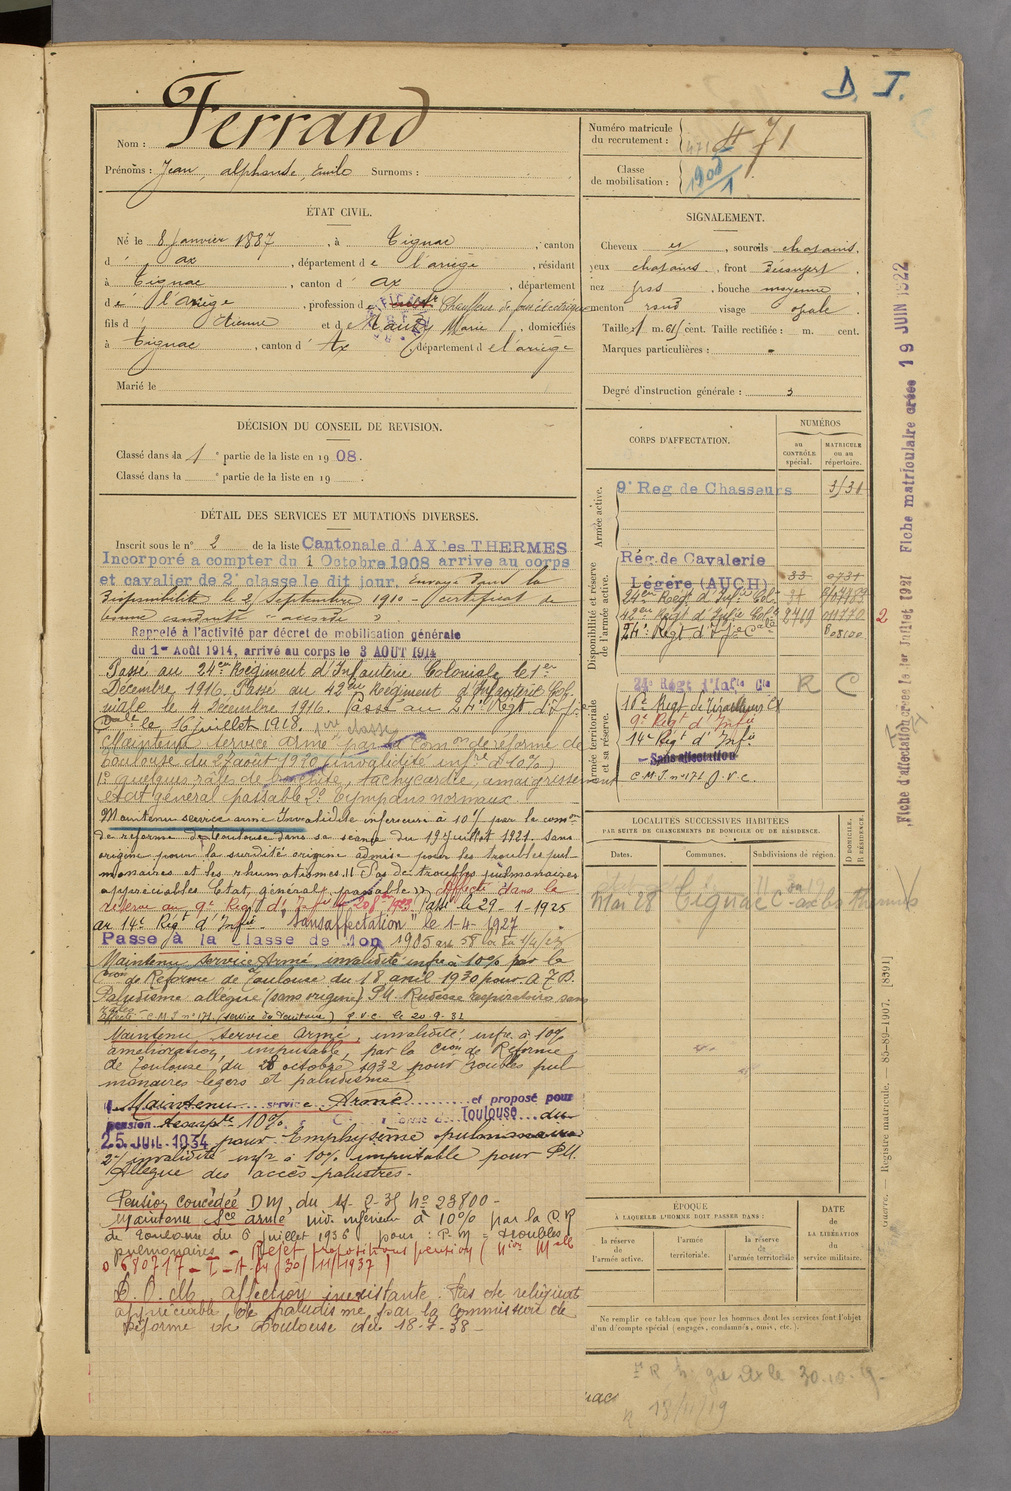 D. T.
Nom : Ferrand
Prénoms : Jean, alphonse, Emile Surnoms :
Numéro matricule
du recrutement :
471
Classe
de mobilisation :
1905
1
ÉTAT CIVIL.
Né le 8 Janvier 1887, à Tignac, canton
d' ax, département de l'ariège, résidant
à Tignac, canton d' ax, département
de l'ariège, profession de Chauffeur de
fils d' Etienne et de Marie, domiciliés
à Tignac, canton d' Ax, département de l'ariège
Marié le
SIGNALEMENT.
Cheveux, sourcils chatains,
yeux chatains, front découvert
nez gros, bouche moyenne
menton rond visage ovale.
Taille 1 m. 61 cent. Taille rectifiée : m. cent.
Marques particulières :
Degré d'instruction générale : 3
DÉCISION DU CONSEIL DE REVISION.
Classé dans la 1e partie de la liste en 1908.
Classé dans la e partie de la liste en 19 .
DÉTAIL DES SERVICES ET MUTATIONS DIVERSES.
Inscrit sous le n° 2 de la liste Cantonale d'AX les THERMES
Incorporé à compter du 1 Octobre 1908 arrivé au corps
et cavalier de 2e classe le dit jour. Envoyé dans la
disponibilité le 2 Septembre 1910 - certificat de
bonne conduite "accordé"
Rappelé à l'activité par décret de mobilisation générale
du 1er Août 1914, arrivé au corps le 3 AOUT 1914
Passé au 24e Régiment d'Infanterie Coloniale le 1er
Décembre 1916. Passé au 42e Régiment d'Infanterie Colo-
niale le 4 Décembre 1916. Passé au 24e Régt d'Infie
Cale le 16 juillet 1918.
Maintenu service armé par la Comon de réforme de
Toulouse du 27 août 1920 (invalidité infre à 10%)
1° quelques râles de bronchite, tachycardie, amaigrissement
état général passable 2° Tympans normaux.
Maintenu service armé Invalidité inférieure à 10% par la comon
de réforme de Toulouse dans sa séance du 19 juillet 1921. sans
origine pour la surdité origine admise pour les troubles pul-
monaires et les rhumatismes. Pas de troubles pulmonaires
appréciables Etat général passable Affecté dans la
réserve au 9e Régt d'Infie Passé le 29-1-1925
au 14e Régt d'Infie. "Sans affectation" le 1-4-1927
Passé à la classe de 1905 art 58
Maintenu Service Armé, invalidité infre à 10% par la
Con de Réforme de Toulouse du 18 avril 1930 pour
Paludisme allégué (sans origine) P.M. Rudesse respiratoire sans
râles
affecté C.M.I. n° 171 (service du Territoire) G.V.C. le 20-9-32
Maintenu Service Armé, invalidité infre à 10%
amélioration, imputable, par la Cion de Réforme
de Toulouse du 28 octobre 1932 pour troubles pul-
monaires légers et paludisme.
Maintenu service Armé et proposé pour
pension tempre 10% Toulouse du
25 JUIL 1934 pour Emphysème pulmonaire
2°/ invalidité infre à 10% imputable pour P.M.
Allègue des accès palustres.
Pension concédée DM, du N° 23800 -
Maintenu Sce armé inv. inférieur à 10% par la C.R
de Toulouse du 6 juillet 1936 pour : P.M = troubles
pulmonaires - Rejet propositions pension
680717 - (30/11/1937)
affection inexistante. Pas de reliquat
appréciable de paludisme par la Commission de
Réforme de Toulouse du 18-7-38 -
CORPS D'AFFECTATION.
NUMÉROS
au
CONTRÔLE
spécial.
MATRICULE
ou au
répertoire.
Armée active.
9e Reg de Chasseurs
Disponibilité et réserve
de l'armée active.
Rég. de Cavalerie
Légère (AUCH)
24e Régt d'Infie Colle
42e Régt d'Infie Colle 2749
24e Régt d'I Cale
2
Armée territoriale
et sa réserve.
24e Régt d'Infie Cle R C
9e Régt d'Infie
14e Régt d'Infie
Sans affectation
C.M.I. n° 171 G.V.C.
LOCALITÉS SUCCESSIVES HABITÉES
PAR SUITE DE CHANGEMENTS DE DOMICILE OU DE RÉSIDENCE.
Dates. Communes. Subdivisions de région. D DOMICILE. R RÉSIDENCE.
Mai 28 Tignac
ÉPOQUE
À LAQUELLE L'HOMME DOIT PASSER DANS :
la réserve
de
l'armée active.
l'armée
territoriale.
la réserve
de
l'armée territoriale
DATE
de
LA LIBÉRATION
du
service militaire.
Ne remplir ce tableau que pour les hommes dont les services font l'objet
d'un décompte spécial (engagés, condamnés, omis, etc.).
Fiche d'affectation créée le 1er Juillet 1921 Fiche matriculaire créée 19 JUIN 1922
Guerre. — Registre matricule. — 85-89-1907. [8391]